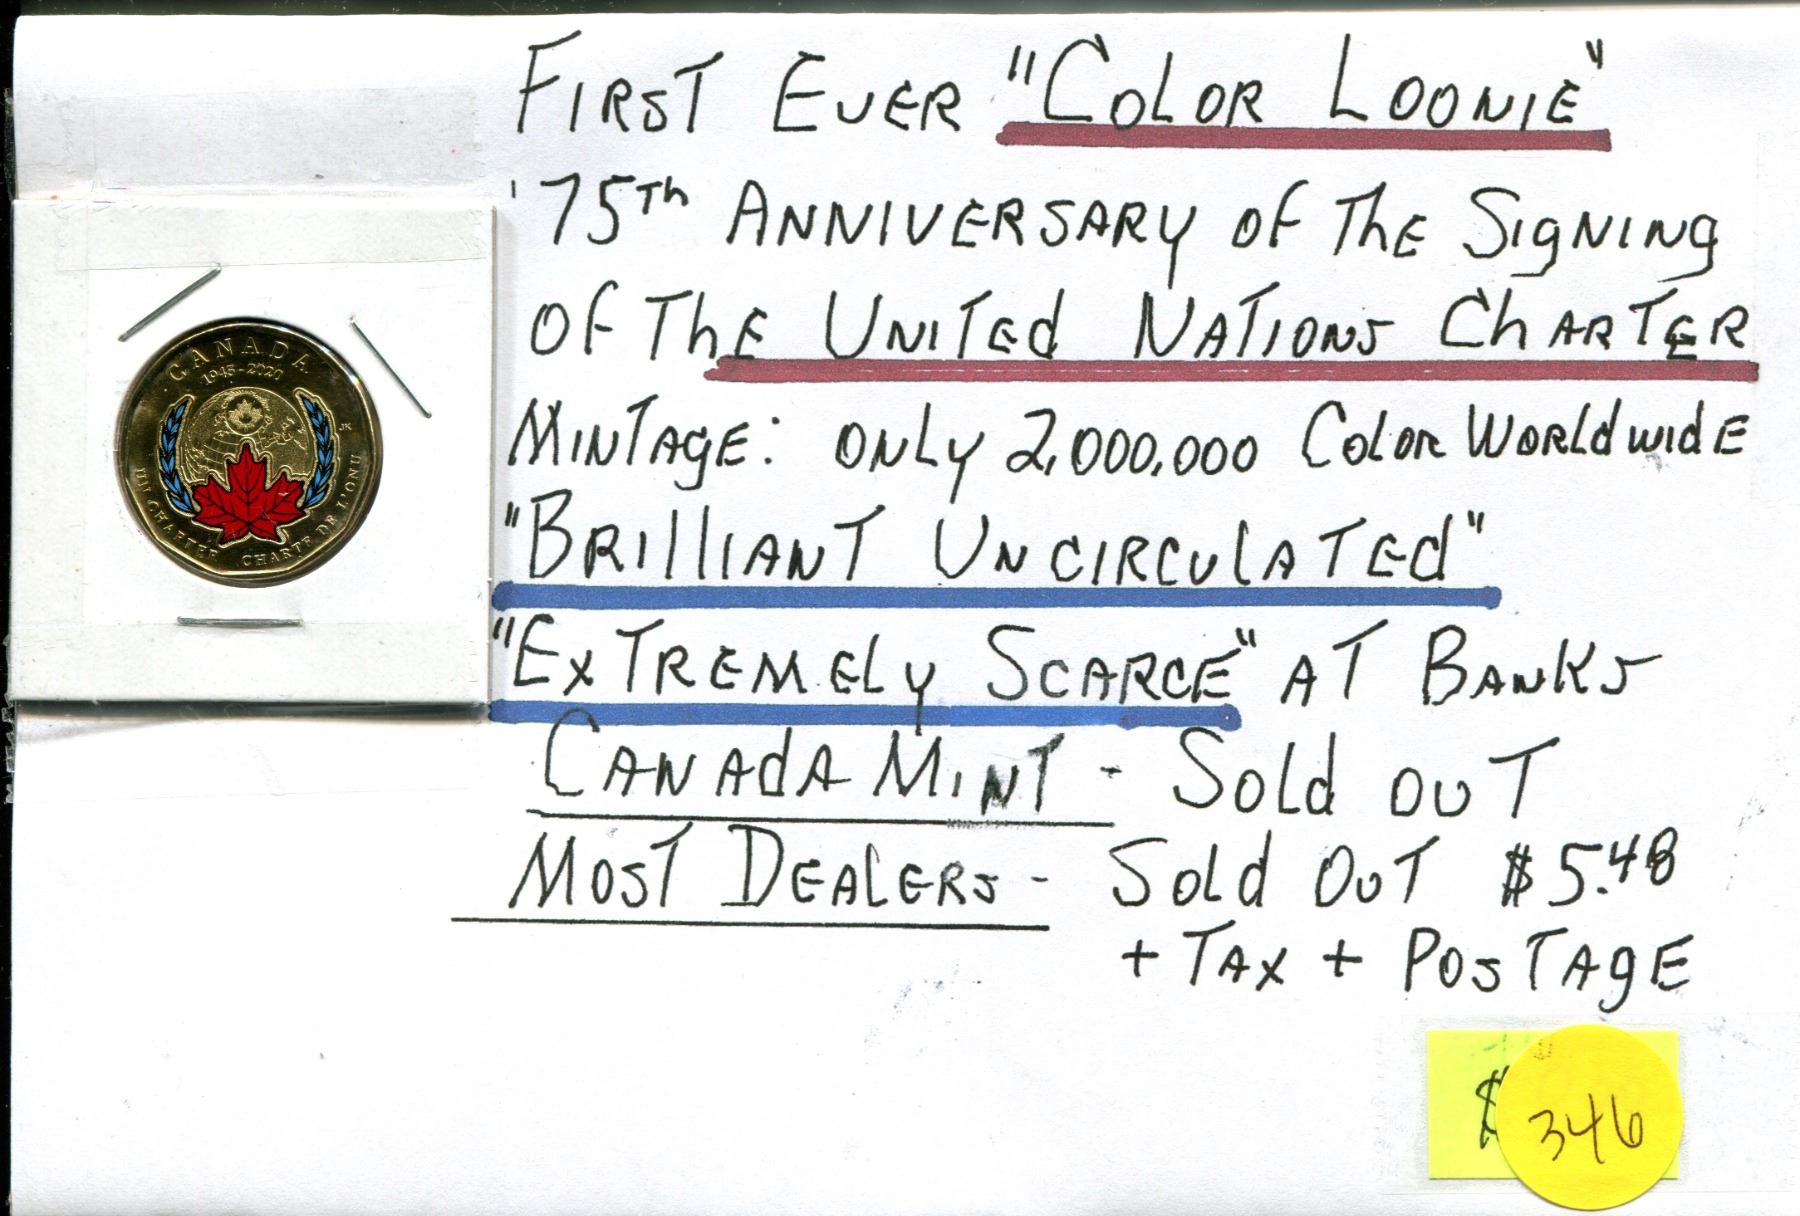 First Ever "Color Loonie"
'75th Anniversary of the Signing
of the United Nations Charter
Mintage: only 2,000,000 Color Worldwide
"Brilliant Uncirculated"
"Extremely Scarce" at Banks
Canada Mint - Sold out
Most Dealers - Sold Out $5.48
+ Tax + Postage
CANADA
1945-2020
JK
UN CHARTER CHARTE DE L'ONU
$
346